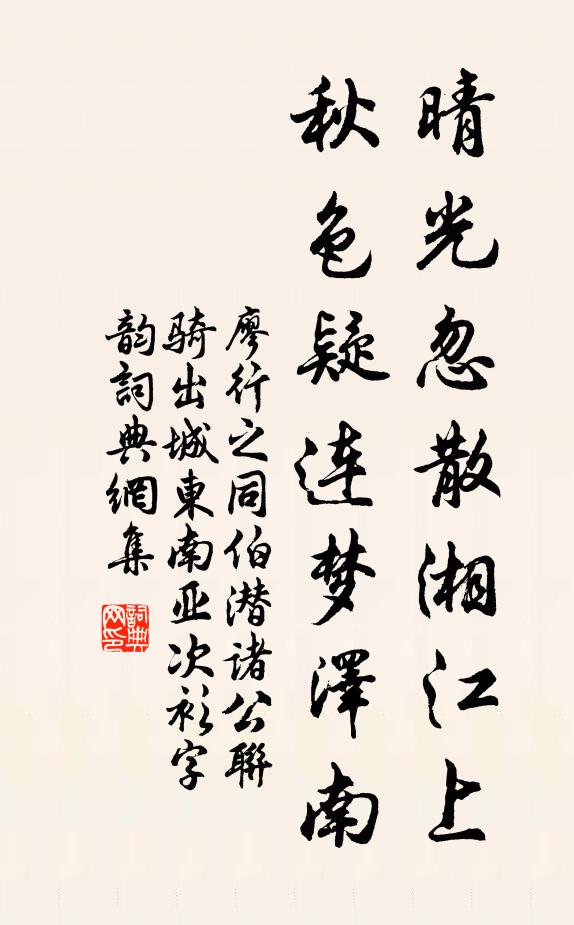 晴光忽散湘江上
秋色疑连梦澤南
廖行之同伯潜諸公聯
騎出城東南亚次衫字
韵詞典網集
詞典网印